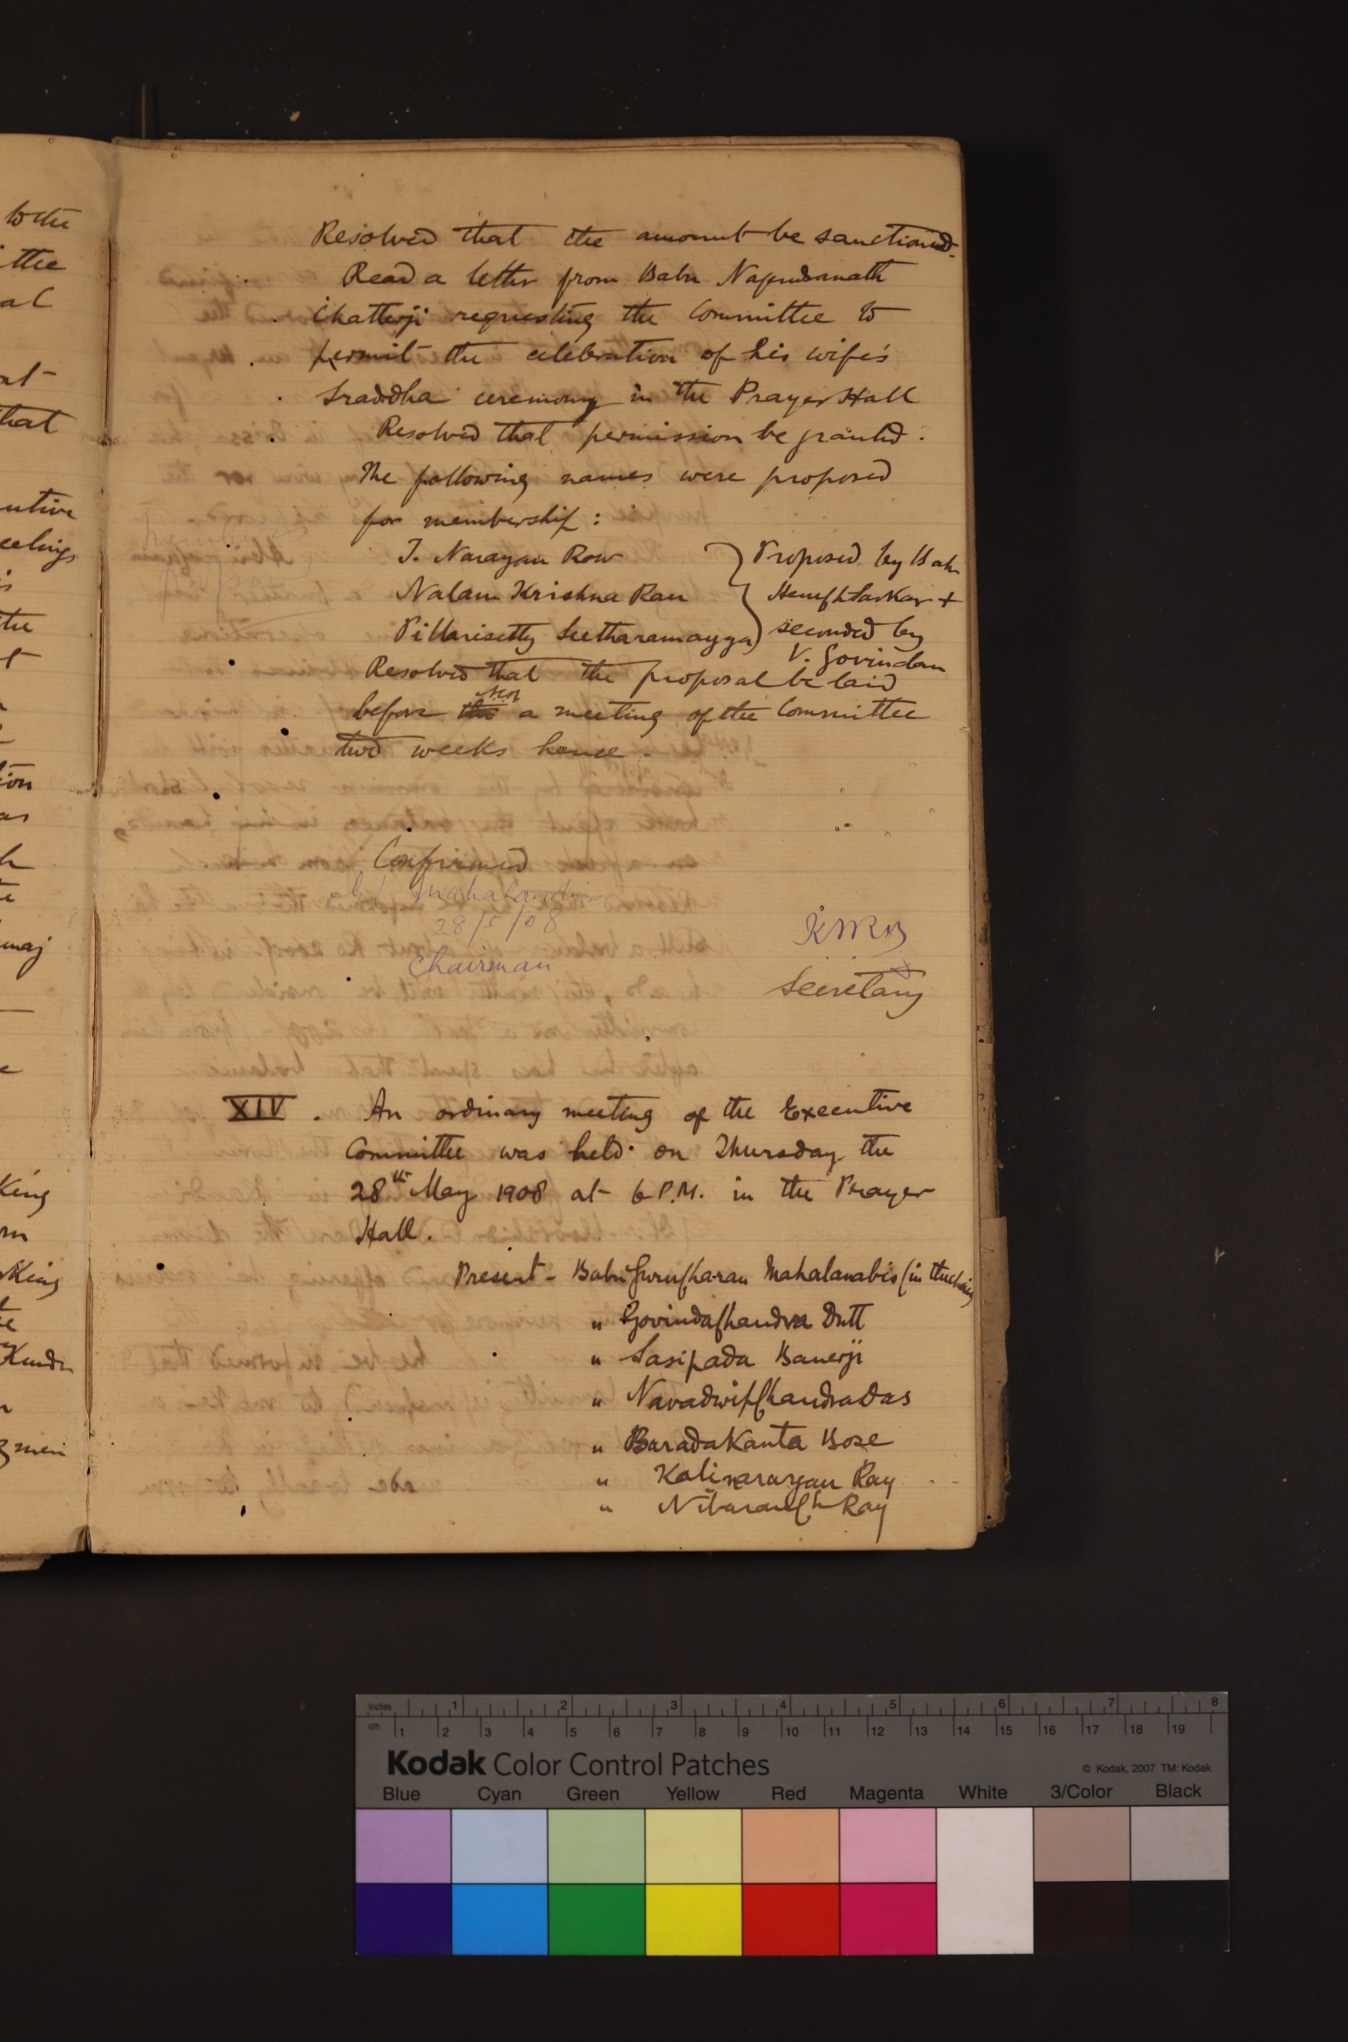 to the
ittee
al
at
that
utive
eelings
is
the
tion
as
h
maj
King
m
King
Kundu
men
Resolved that the amount be sanctioned.
Read a letter from Babu Nagendranath
Chatterji requesting the Committee to
permit the celebration of his wife's
Sraddha ceremony in the Prayer Hall
Resolved that permission be granted.
The following names were proposed
for membership:
T. Narayan Row
Nalam Krishna Rau
Pillarisetty Seetharamayya
Proposed by Babu
Hem Ch Sarkar +
seconded by
V. Govindan
Resolved that the proposal be laid
before the a meeting of the Committee
two weeks hence.
Confirmed
Mahalanobis
28/5/08
Chairman
Secretary
XIV. An ordinary meeting of the Executive
Committee was held on Thursday the
28th May 1908 at 6 P.M. in the Prayer
Hall.
Present - Babu Guru Charan Mahalanabis (in the chair)
" Govinda Chandra Dutt
" Sasipada Banerji
" Navadwip Chandra Das
" Barada Kanta Bose
" Kalinarayan Ray
" Nibaran Ch Ray
inches 1 2 3 4 5 6 7 8
cm 1 2 3 4 5 6 7 8 9 10 11 12 13 14 15 16 17 18 19
Kodak Color Control Patches © Kodak, 2007 TM: Kodak
Blue Cyan Green Yellow Red Magenta White 3/Color Black